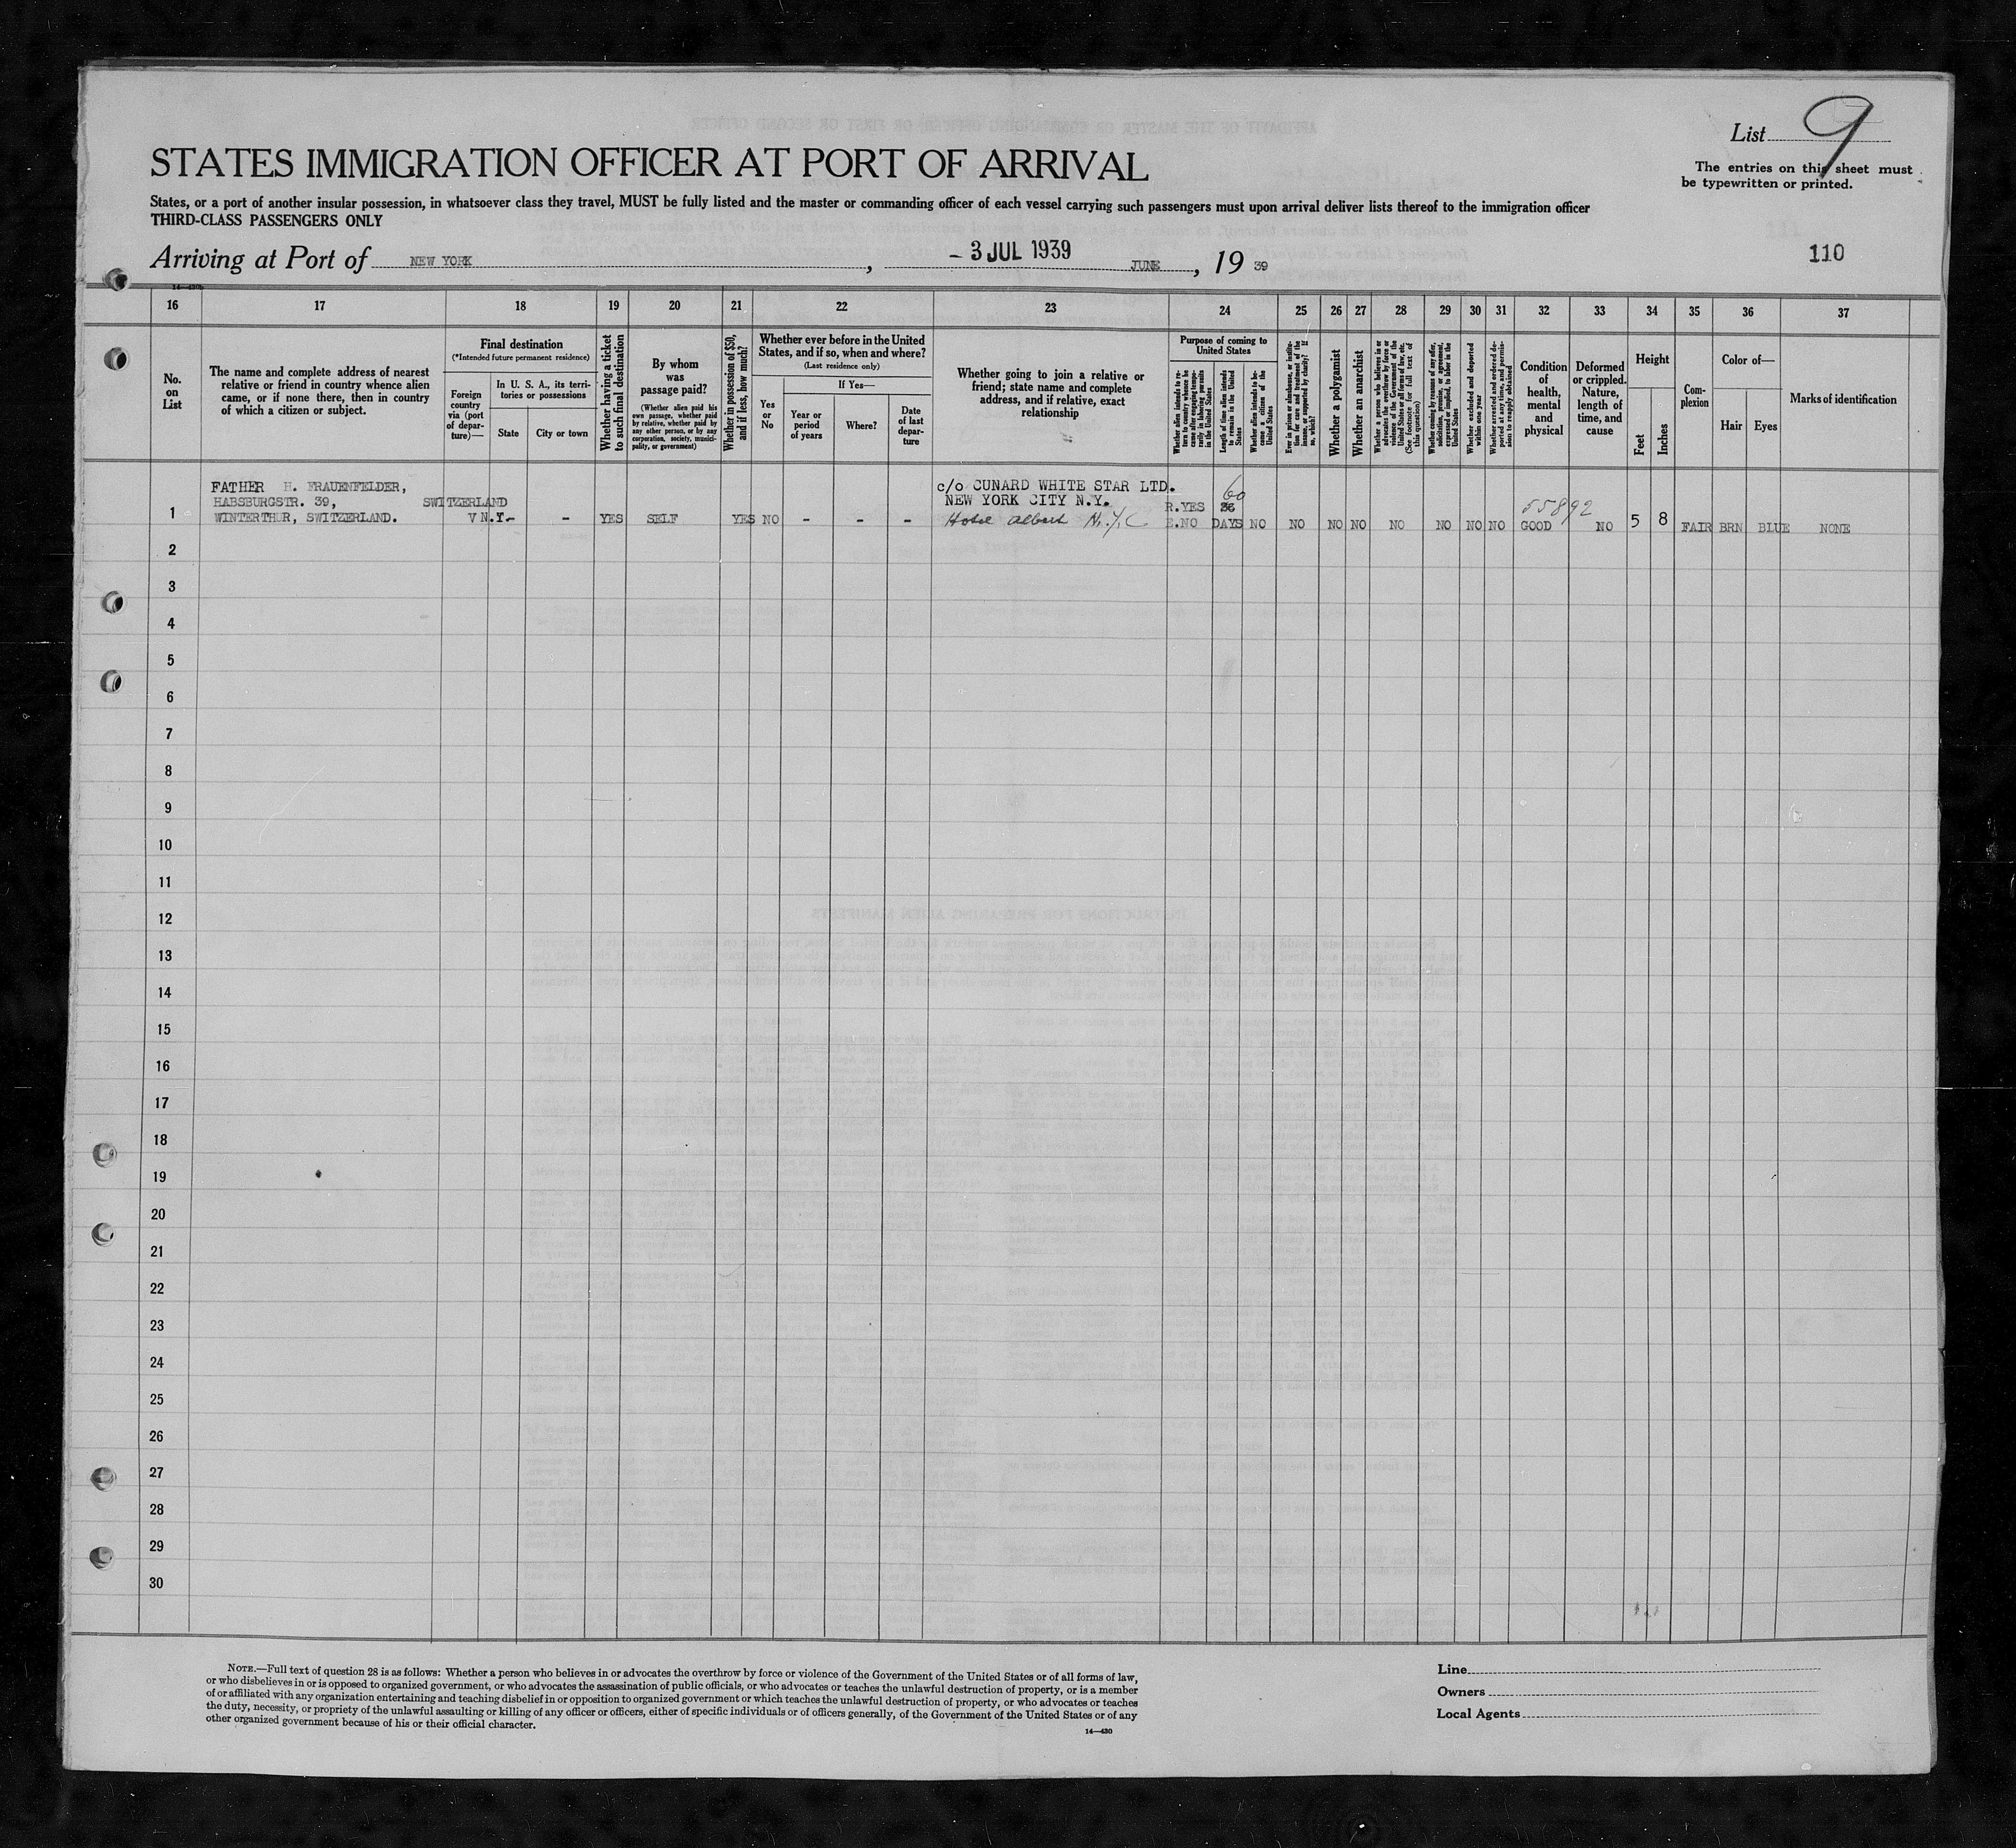 List 9
The entries on this sheet must
be typewritten or printed.
STATES IMMIGRATION OFFICER AT PORT OF ARRIVAL
States, or a port of another insular possession, in whatsoever class they travel, MUST be fully listed and the master or commanding officer of each vessel carrying such passengers must upon arrival deliver lists thereof to the immigration officer
THIRD-CLASS PASSENGERS ONLY
Arriving at Port of NEW YORK, - 3 JUL 1939 JUNE, 19 39
110
16 17 18 19 20 21 22 23 24 25 26 27 28 29 30 31 32 33 34 35 36 37
No.
on
List
The name and complete address of nearest
relative or friend in country whence alien
came, or if none there, then in country
of which a citizen or subject.
Final destination
(*Intended future permanent residence)
Foreign
country
via (port
of depar-
ture)—
In U. S. A., its terri-
tories or possessions
State
City or town
Whether having a ticket
to such final destination
By whom
was
passage paid?
(Whether alien paid his
own passage, whether paid
by relative, whether paid by
any other person, or by any
corporation, society, munici-
pality, or government)
Whether in possession of $50,
and if less, how much?
Whether ever before in the United
States, and if so, when and where?
(Last residence only)
Yes
or
No
If Yes—
Year or
period
of years
Where?
Date
of last
depar-
ture
Whether going to join a relative or
friend; state name and complete
address, and if relative, exact
relationship
Purpose of coming to
United States
Whether alien intends to re-
turn to country whence he
came after engaging tempo-
rarily in laboring pursuits
in the United States
Length of time alien intends
to remain in the United
States
Whether alien intends to be-
come a citizen of the
United States
Ever in prison or almshouse, or institu-
tion for care and treatment of the
insane, or supported by charity? If
so, which?
Whether a polygamist
Whether an anarchist
Whether a person who believes in or
advocates the overthrow by force or
violence of the Government of the
United States or all forms of law, etc.
(See footnote for full text of
this question)
Whether coming by reasons of any offer,
solicitation, promise, or agreement,
expressed or implied, to labor in the
United States
Whether excluded and deported
within one year
Whether arrested and ordered de-
ported at any time, and permis-
sion to reapply obtained
Condition
of
health,
mental
and
physical
Deformed
or crippled.
Nature,
length of
time, and
cause
Height
Feet
Inches
Com-
plexion
Color of—
Hair
Eyes
Marks of identification
FATHER H. FRAUENFELDER, c/o CUNARD WHITE STAR LTD. 60
HABSBURGSTR. 39, SWITZERLAND NEW YORK CITY N.Y. R.YES 55892
1 WINTERTHUR, SWITZERLAND. V N.Y.- - YES SELF YES NO - - - Hotel Albert N.Y.C E.NO DAYS NO NO NO NO NO NO NO NO GOOD NO 5 8 FAIR BRN BLUE NONE
2
3
4
5
6
7
8
9
10
11
12
13
14
15
16
17
18
19
20
21
22
23
24
25
26
27
28
29
30
NOTE.—Full text of question 28 is as follows: Whether a person who believes in or advocates the overthrow by force or violence of the Government of the United States or of all forms of law,
or who disbelieves in or is opposed to organized government, or who advocates the assassination of public officials, or who advocates or teaches the unlawful destruction of property, or is a member
of or affiliated with any organization entertaining and teaching disbelief in or opposition to organized government or which teaches the unlawful destruction of property, or who advocates or teaches
the duty, necessity, or propriety of the unlawful assaulting or killing of any officer or officers, either of specific individuals or of officers generally, of the Government of the United States or of any
other organized government because of his or their official character.
14—430
Line
Owners
Local Agents